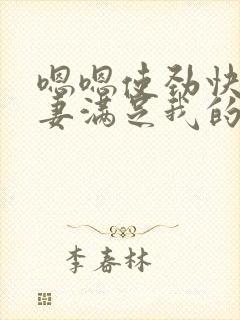 嗯嗯使劲快
妻满足我的
李春林